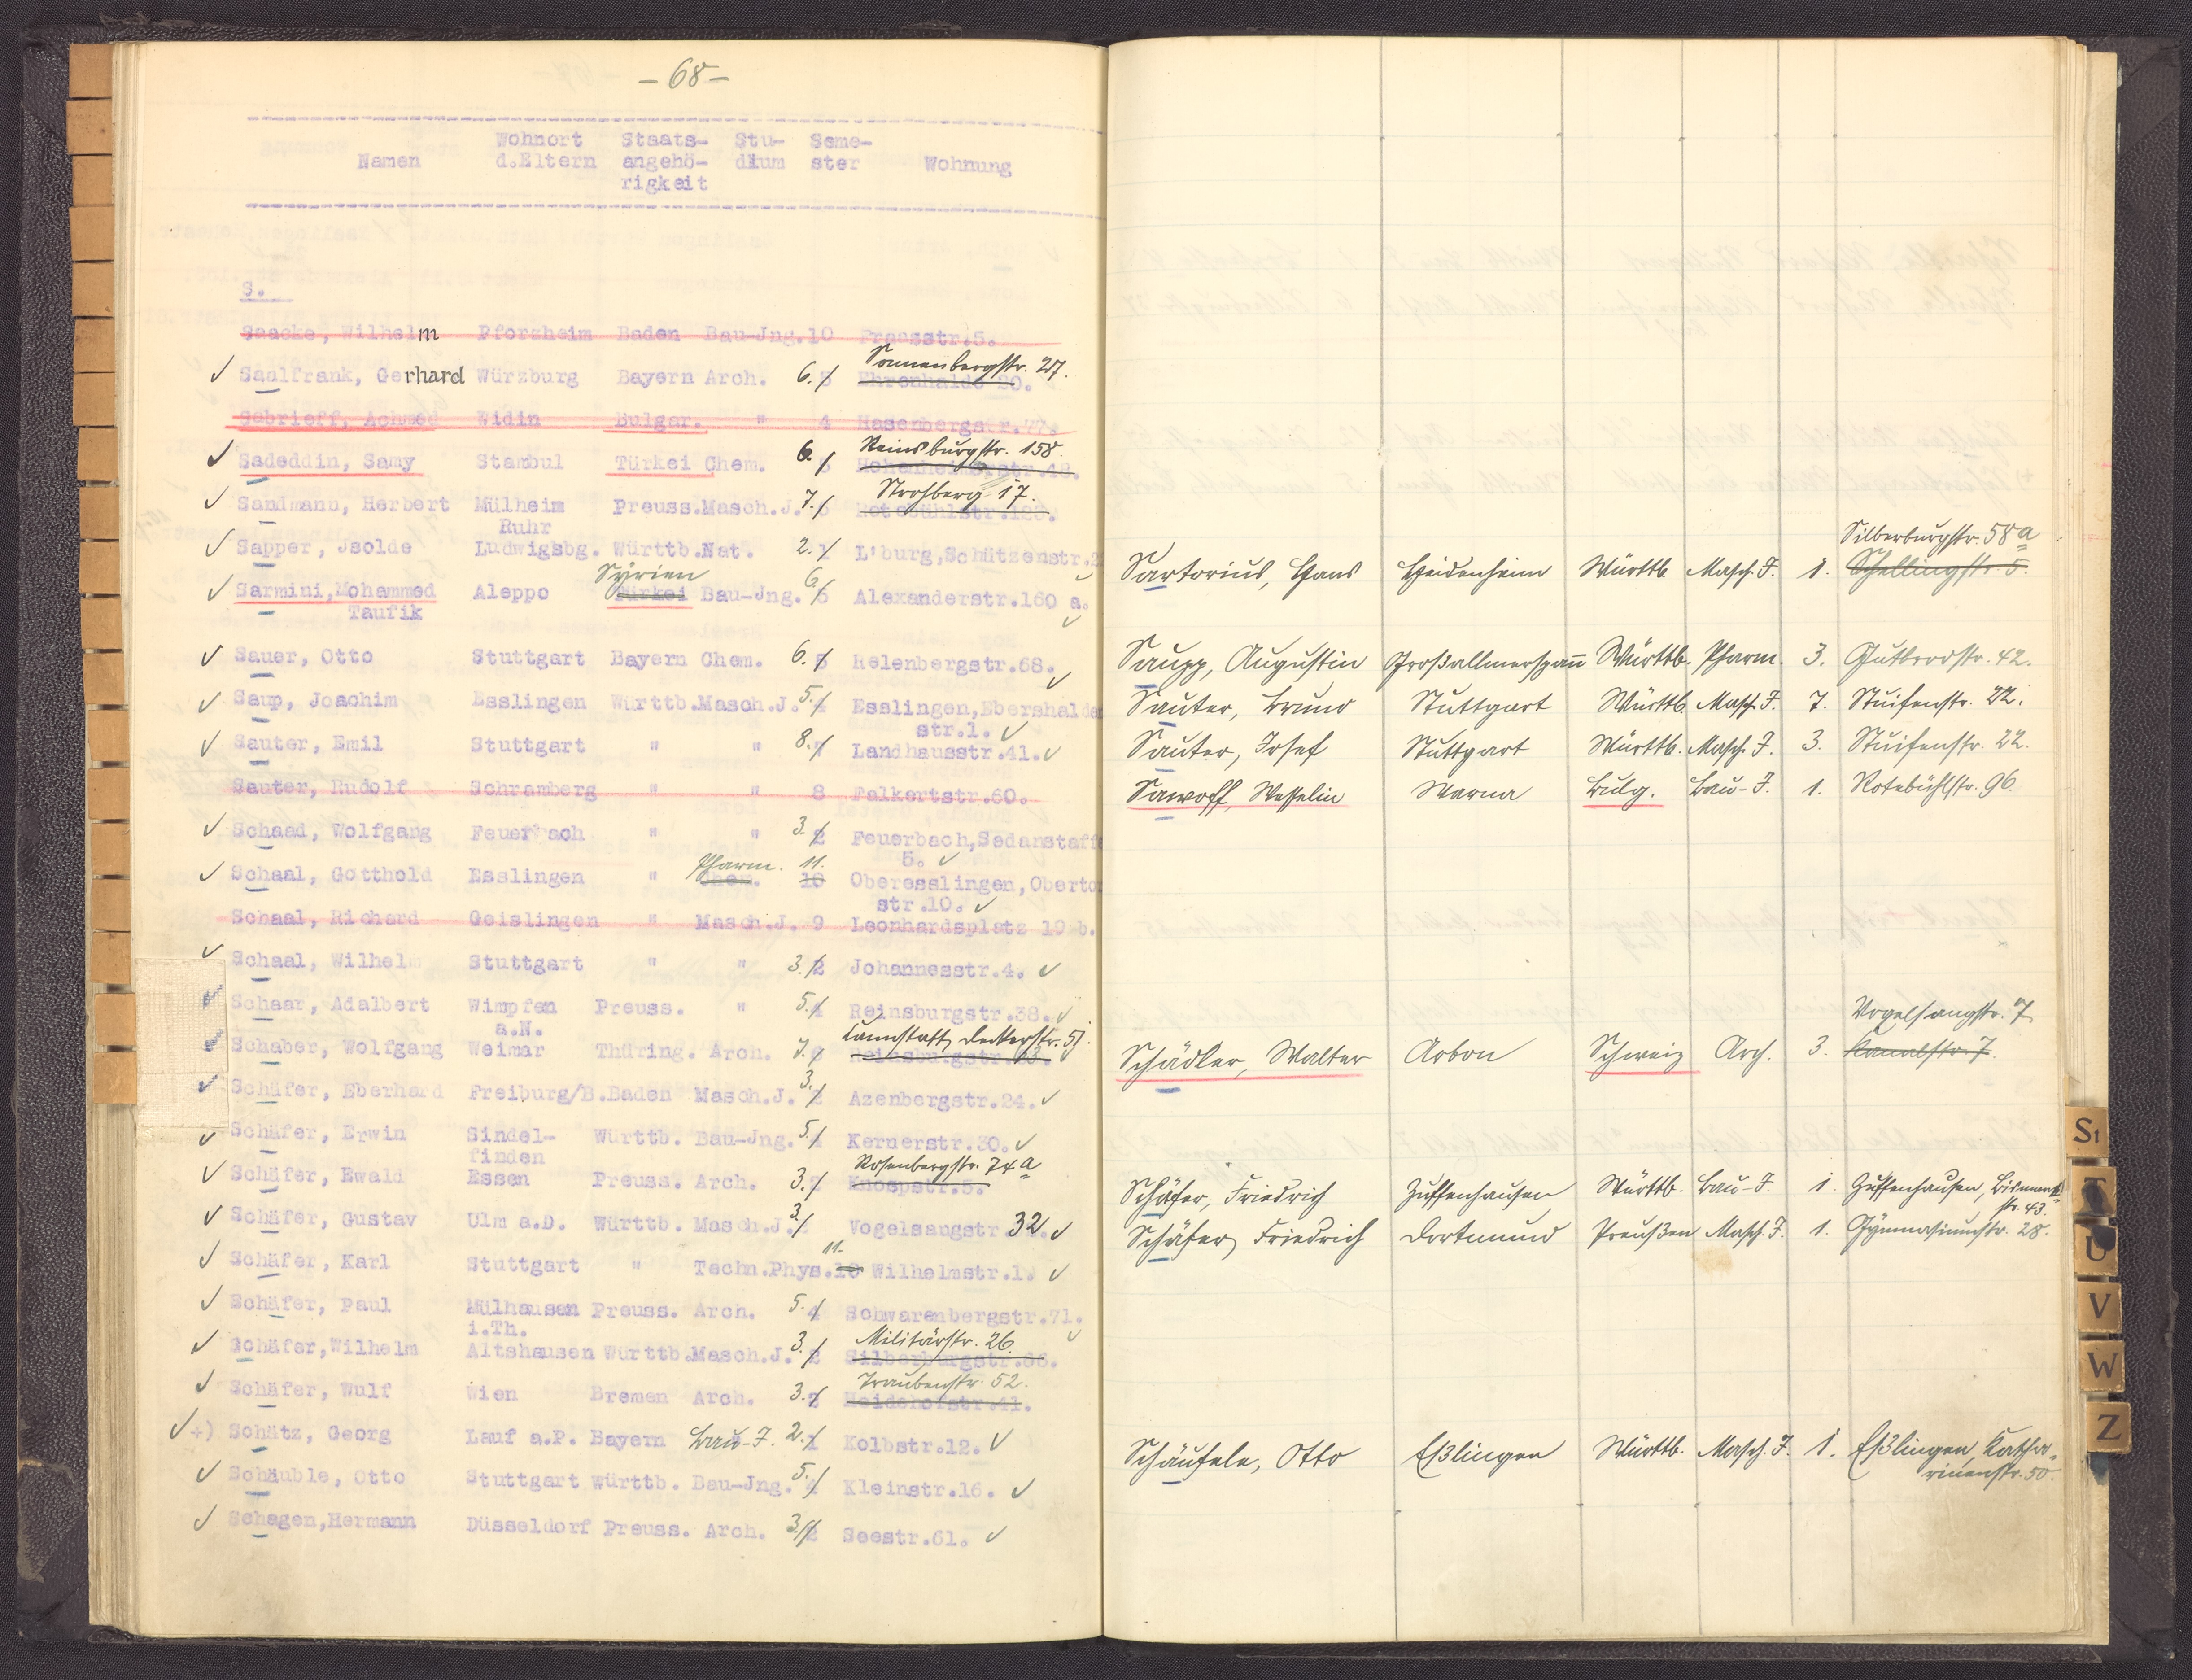 - 68 -
Namen Wohnort d.Eltern Staats- angehö- rigkeit Stu- dium Seme- ster Wohnung
S.
Saacke, Wilhelm Pforzheim Baden Bau-Jng. 10
Sonnenbergstr. 27.
Saalfrank, Gerhard Würzburg Bayern Arch. 6. 5 Ehrenhalde 20.
Sabrieff, Achmed Widin Bulgar. " 4 Hasenbergstr.77.
Reinsburgstr. 158.
Sadeddin, Samy Stambul Türkei Chem. 6. 5 Hohenheimerstr.48.
Strohberg 17.
Sandmann, Herbert Mülheim Preuss. Masch.J. 7. 6 Rotebühlstr.
Ruhr
Sapper, Jsolde Ludwigsbg. Württb. Nat. 2. 1 L'burg, Schützenstr.
Syrien
Sarmini, Mohammed Aleppo Türkei Bau-Jng. 6. 5 Alexanderstr.160 a.
Taufik
Sauer, Otto Stuttgart Bayern Chem. 6. 5 Relenbergstr.68.
Saup, Joachim Esslingen Württb. Masch.J. 5. 4 Esslingen, Ebershalden
str.1.
Sauter, Emil Stuttgart " " 8. 7 Landhausstr.41.
Sauter, Rudolf Schramberg " " 8 Falkertstr.60.
Schaad, Wolfgang Feuerbach " " 3. 2 Feuerbach, Sedanstaffe
5.
Pharm. 11.
Schaal, Gotthold Esslingen " Chem. 10 Oberesslingen, Oberto
str.10.
Schaal, Richard Geislingen " Masch.J. 9 Leonhardsplatz 19 b.
Schaal, Wilhelm Stuttgart " " 3. 2 Johannesstr.4.
Schaar, Adalbert Wimpfen Preuss. " 5. 4 Reinsburgstr.38.
a.N.
Cannstatt, Deckerstr. 51.
Schaber, Wolfgang Weimar Thüring. Arch. 7. Reinsburgstr.
Schäfer, Eberhard Freiburg/B. Baden Masch.J. 3. 2 Azenbergstr.24.
Schäfer, Erwin Sindel- Württb. Bau-Jng. 5. 4 Kernerstr.30.
finden
Rosenbergstr. 74a
Schäfer, Ewald Essen Preuss. Arch. 3. 2 Knospstr.5.
Schäfer, Gustav Ulm a.D. Württb. Masch.J. 3. 2 Vogelsangstr. 32.
11.
Schäfer, Karl Stuttgart " Techn.Phys. 10 Wilhelmstr.1.
Schäfer, Paul Mülhausen Preuss. Arch. 5. 4 Schwarenbergstr.71.
i.Th.
Militärstr. 26.
Schäfer, Wilhelm Altshausen Württb. Masch.J. 3. 2 Silberburgstr.
Traubenstr. 52.
Schäfer, Wulf Wien Bremen Arch. 3. 2 Heidehofstr.41.
+) Schätz, Georg Lauf a.P. Bayern Bau-J. 2. 1 Kolbstr.12.
Schäuble, Otto Stuttgart Württb. Bau-Jng. 5. 4 Kleinstr.16.
Schagen, Hermann Düsseldorf Preuss. Arch. 3. 2 Seestr.61.
Silberburgstr. 58a
Sartorius, Hans Heidenheim Württb Masch. J. 1. Schellingstr. 5.
Saupp, Augustin Großallmerspann Württb. Pharm. 3. Gutbrodstr. 42.
Sauter, Bruno Stuttgart Württb. Masch. J. 7. Stuifenstr. 22.
Sauter, Josef Stuttgart Württb. Masch. J. 3. Stuifenstr. 22.
Sawoff, Wesselin Warna Bulg. Bau-J. 1. Rotebühlstr. 96
Vogelsangstr. 7
Schädler, Walter Arbon Schweiz Arch. 3. Kanalstr. 7.
Schäfer, Friedrich Zuffenhausen Württb. Bau-J. 1. Zuffenhausen, Bismarck
str. 43.
Schäfer, Friedrich Dortmund Preußen Masch. J. 1. Gymnasiumstr. 28.
Schäufele, Otto Eßlingen Württb. Masch. J. 1. Eßlingen, Katha-
rinenstr. 50.
St
T
U
V
W
Z